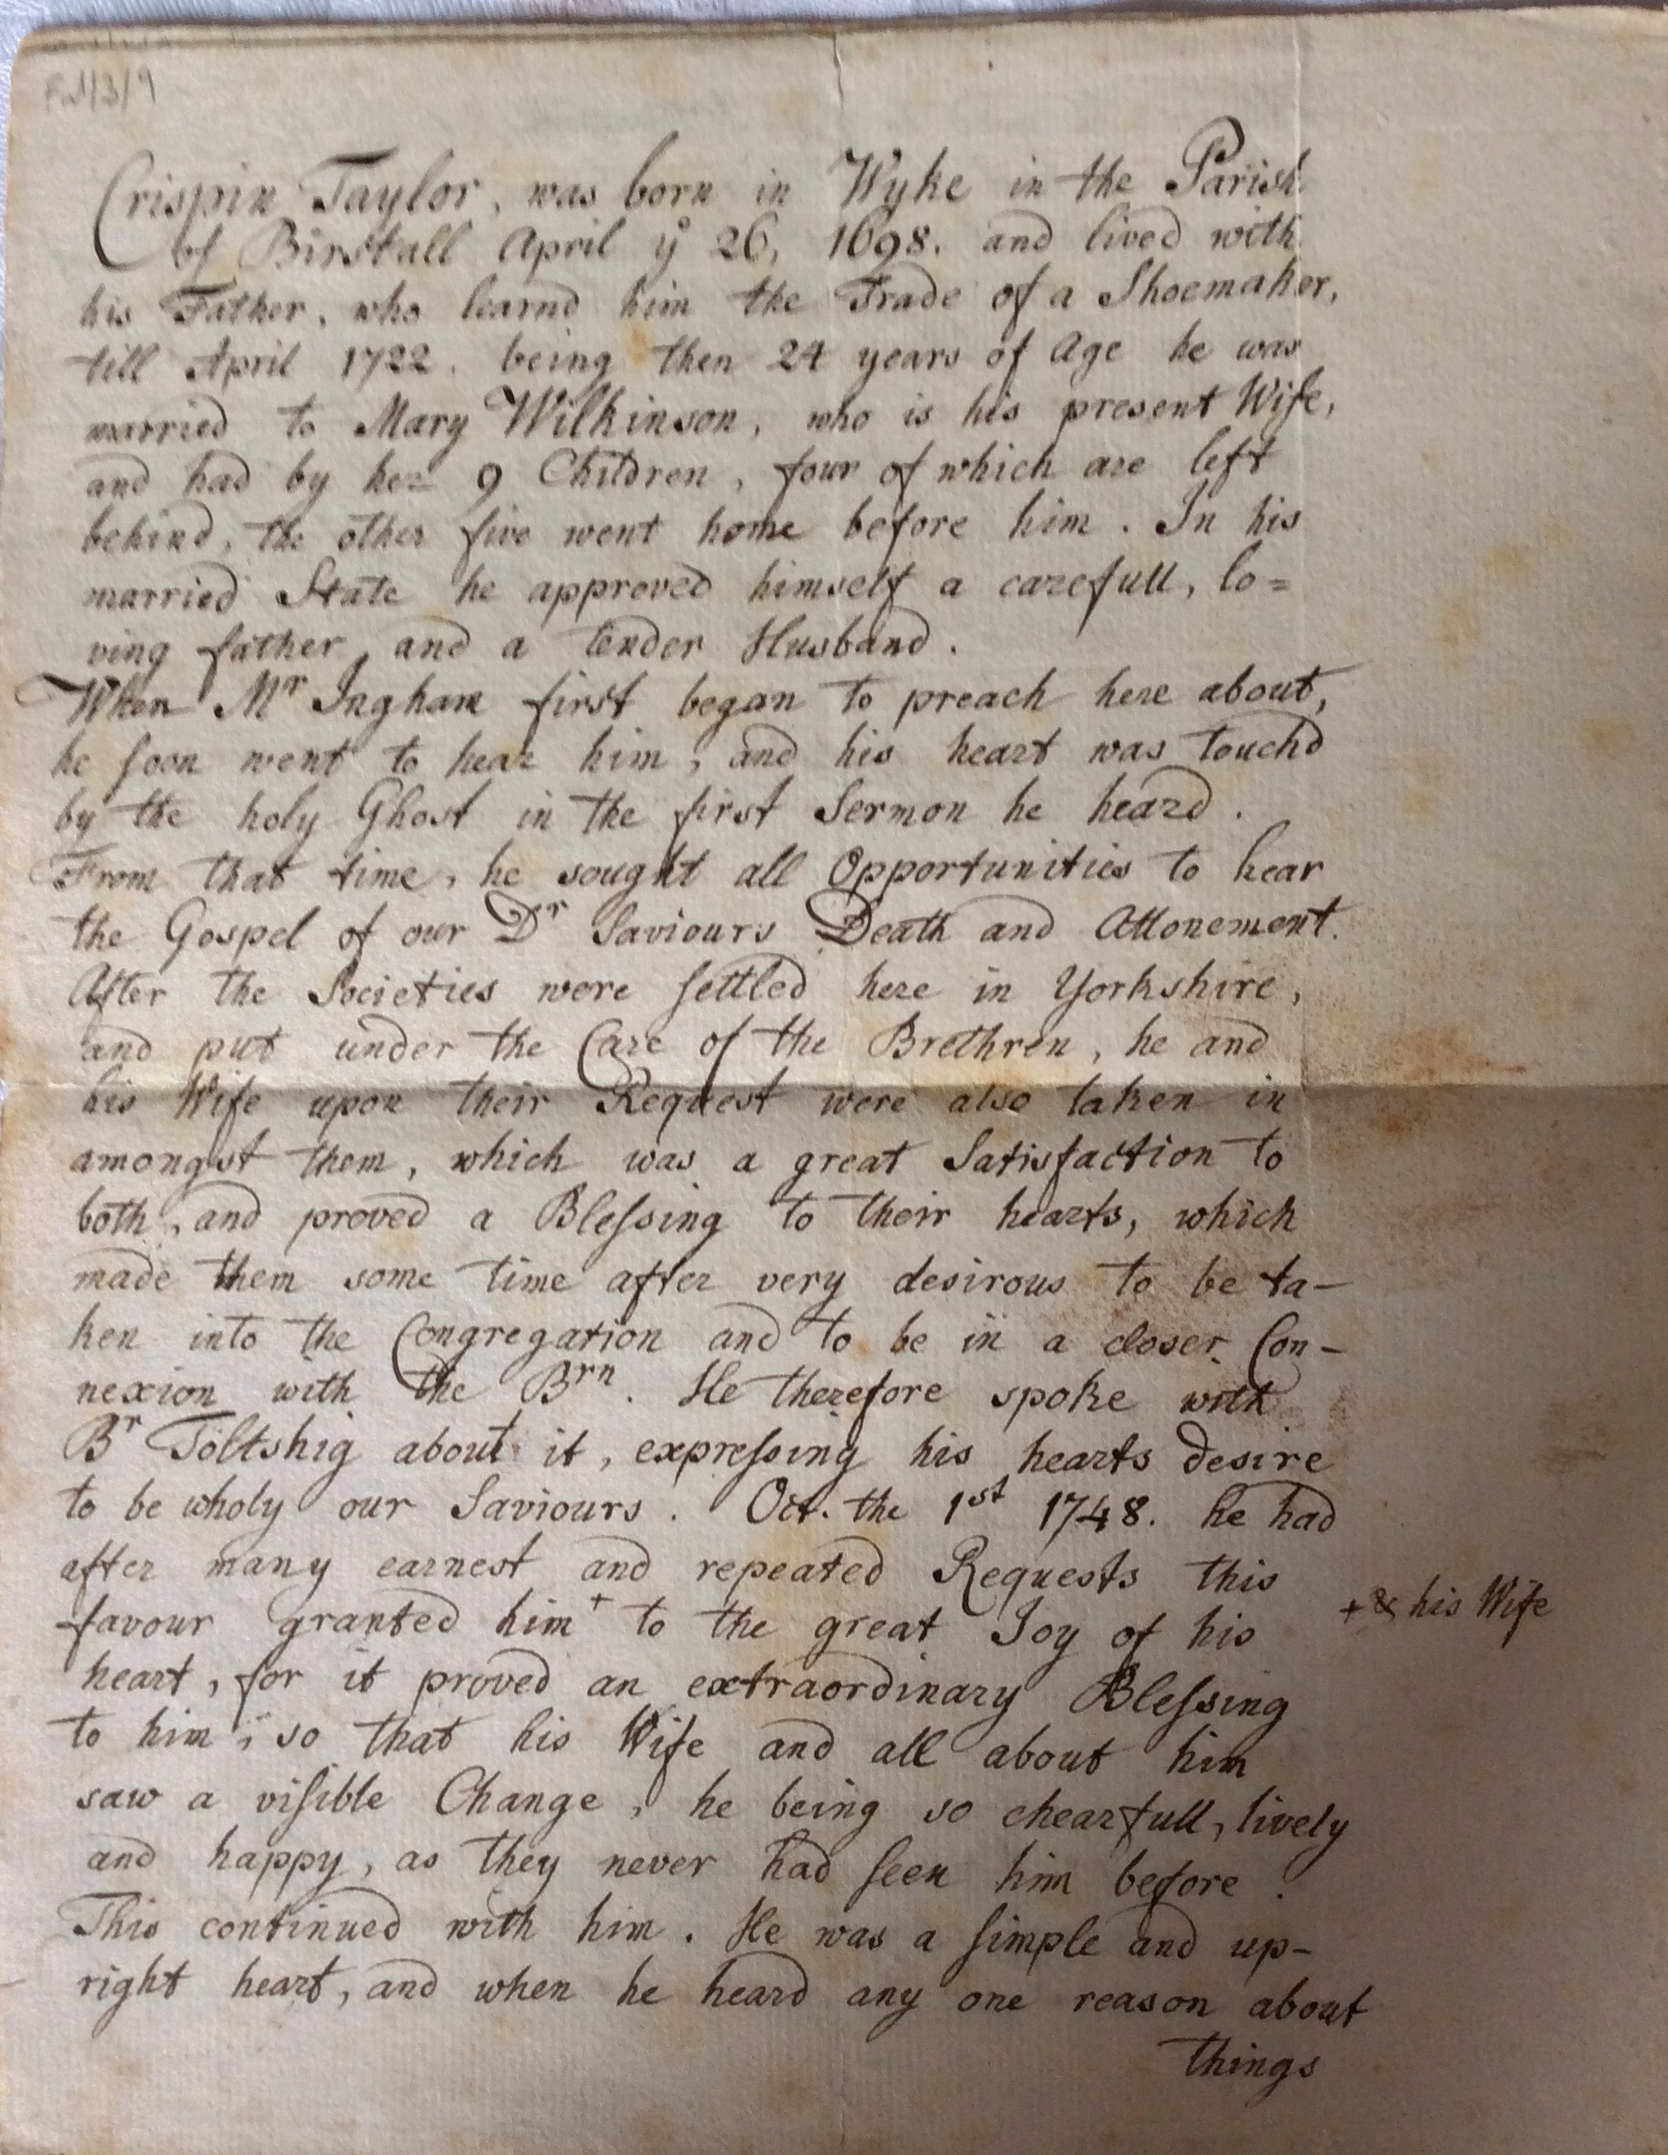 Crispin Taylor, was born in Wyke in the Parish
of Birstall April yᵉ 26, 1698. and lived with
his Father, who learnd him the Trade of a Shoemaker,
till April 1722. being then 24 years of Age he was
married to Mary Wilkinson, who is his present Wife,
and had by her 9 Children, four of which are left
behind, the other five went home before him. In his
married State he approved himself a carefull, lo=
ving father, and a tender Husband.
When Mʳ Ingham first began to preach here about,
he soon went to hear him, and his heart was touchd
by the holy Ghost in the first Sermon he heard.
From that time, he sought all Opportunities to hear
the Gospel of our Dʳ Saviours Death and Attonement.
After the Societies were settled here in Yorkshire,
and put under the Care of the Brethren, he and
his Wife upon their Request were also taken in
amongst them, which was a great Satisfaction to
both, and proved a Blessing to their hearts, which
made them some time after very desirous to be ta-
ken into the Congregation and to be in a closer Con-
nexion with the Bʳⁿ. He therefore spoke with
Bʳ Töltshig about it, expressing his hearts desire
to be wholy our Saviours. Oct. the 1ˢᵗ 1748. he had
after many earnest and repeated Requests this
favour granted him + to the great Joy of his
+ & his Wife
heart, for it proved an extraordinary Blessing
to him, so that his Wife and all about him
saw a visible Change, he being so chearfull, lively
and happy, as they never had seen him before.
This continued with him. He was a simple and up-
right heart, and when he heard any one reason about
things